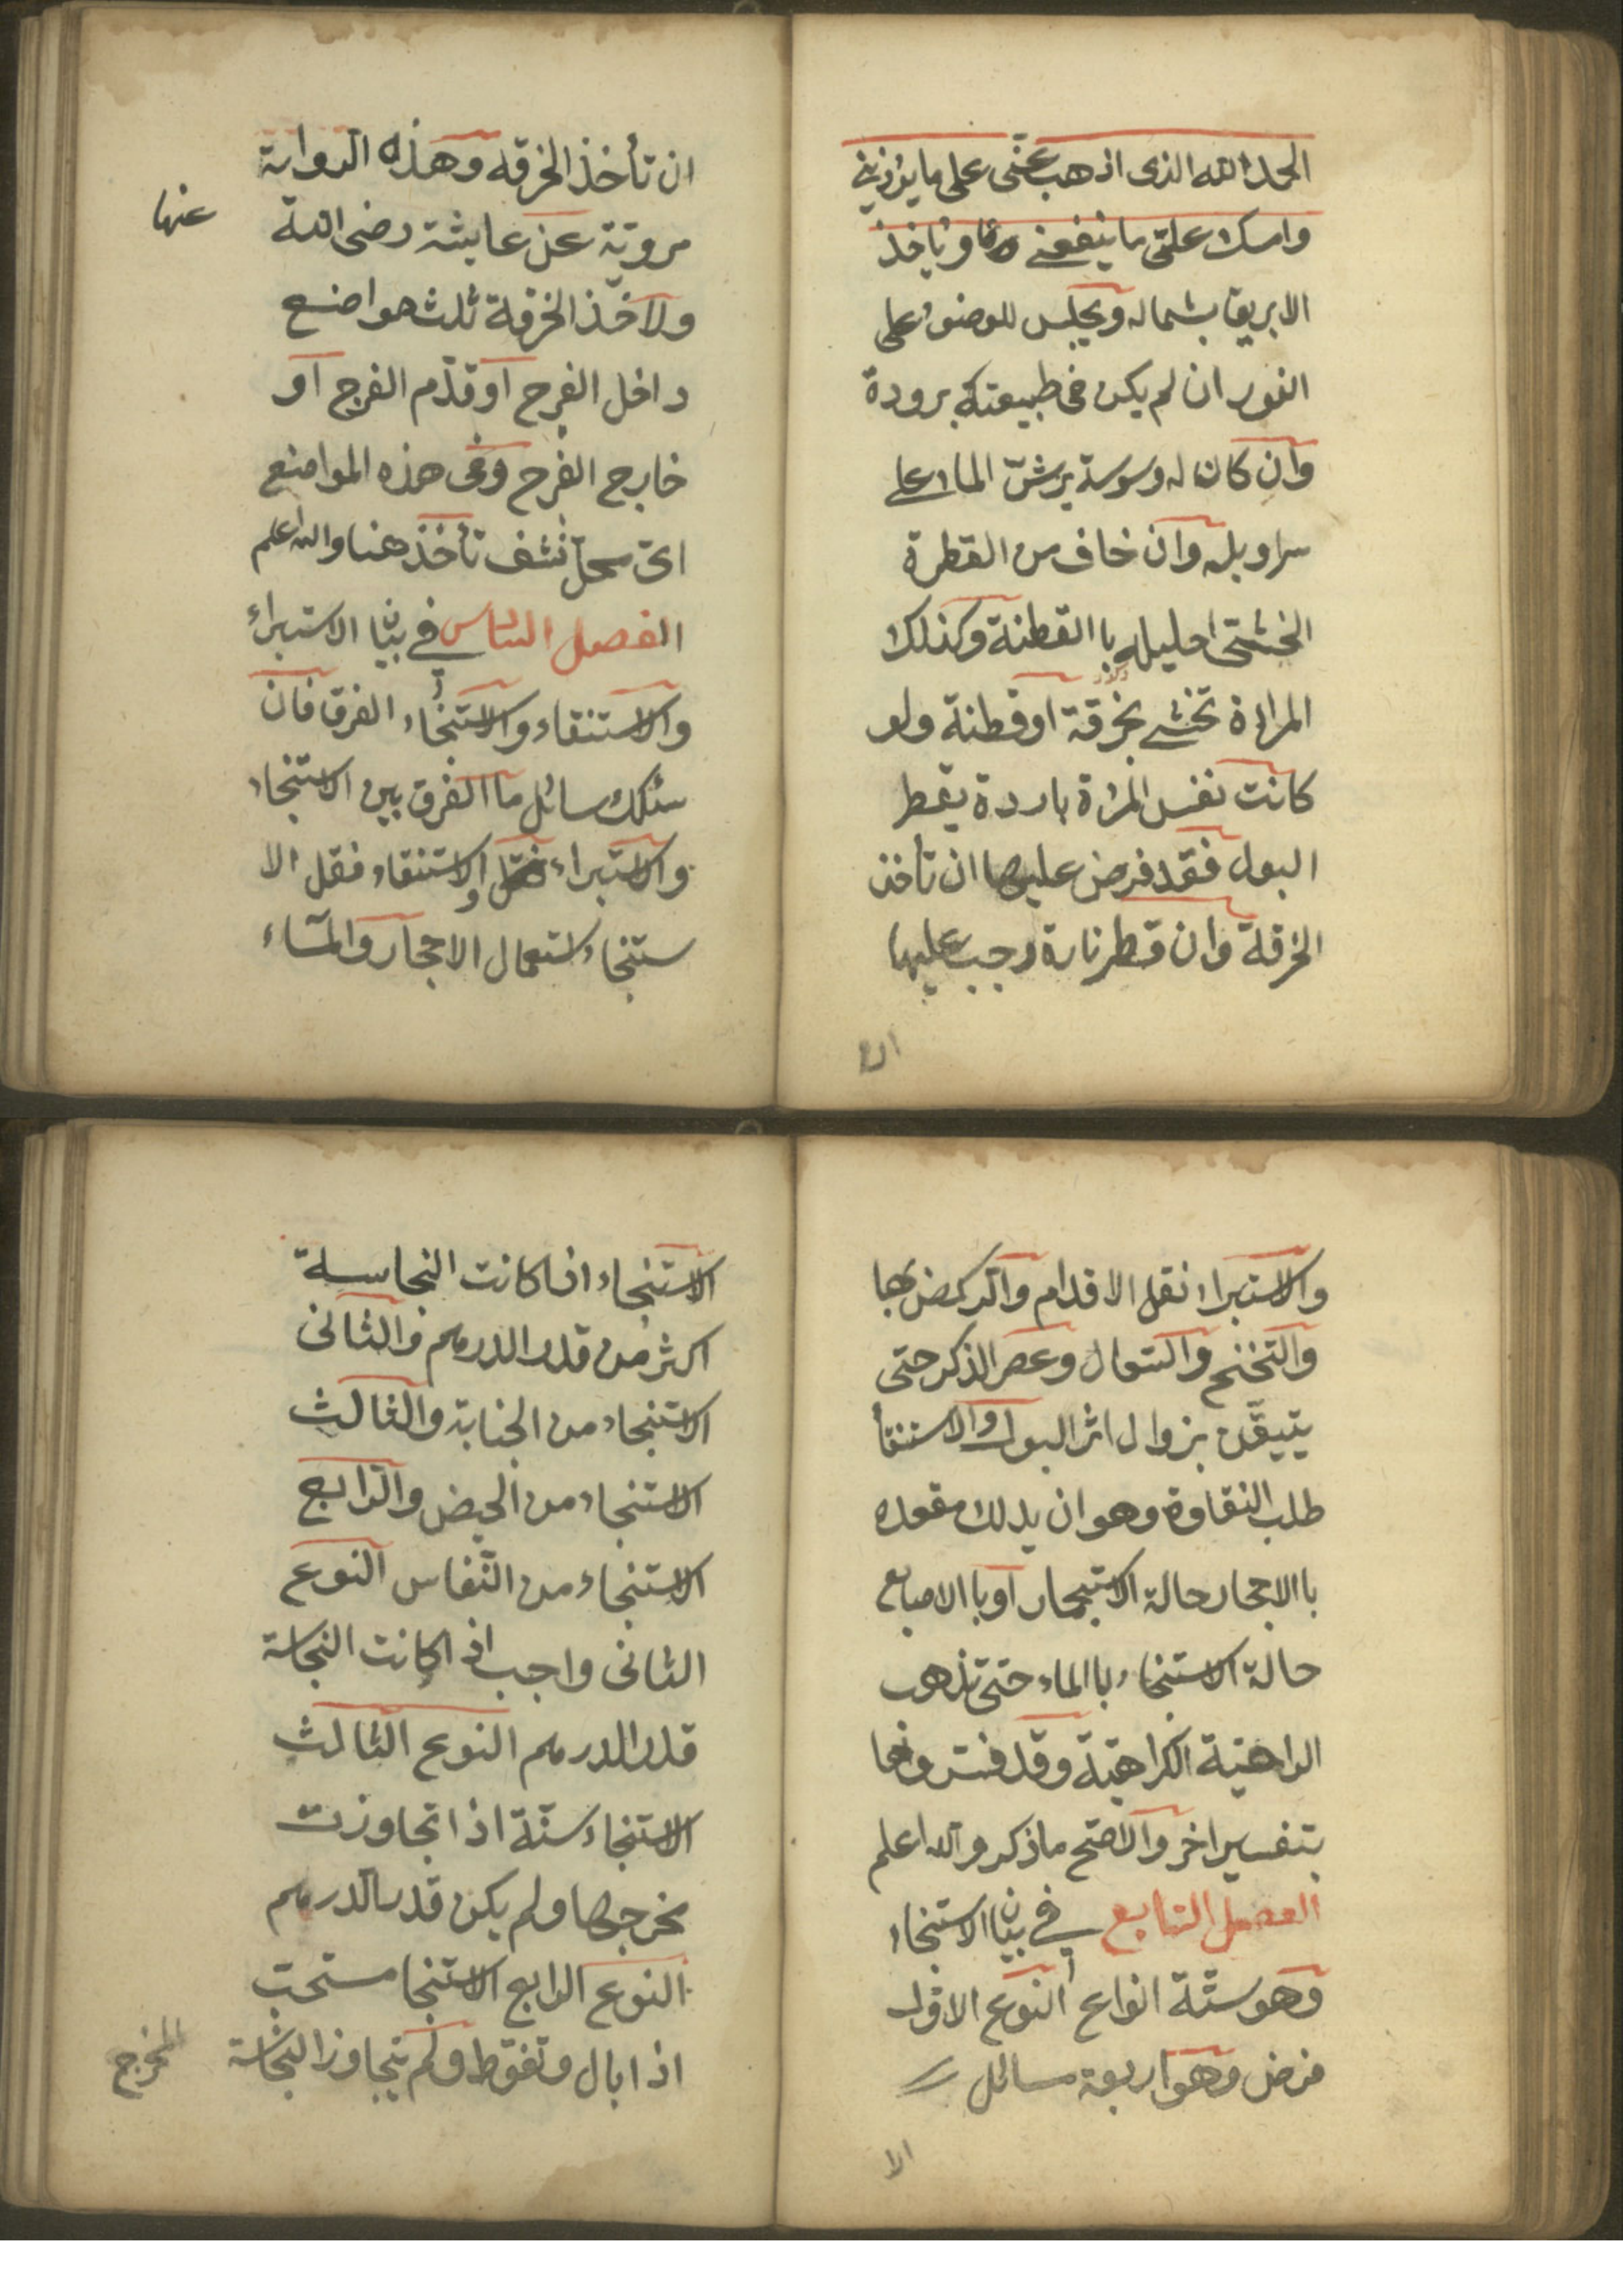 الحمد لله الذى اذهب عنّى على ما يؤذينى
وامسك علىّ ما ينفعنى وياخذ
الابريق بشماله ويجلس للوضوء على
الفور ان لم يكن فى طبيعتكه برودة
وان كان له وسوسة يرشّ الماء على
سراويله وان خاف من القطرة
احليله باالقطنة وكذلك
المراة تخشى بخرقة اوقطنة ولو
كانت نفس المرئة باردة يقطر
البول فقد فرض عليها ان تأخذ
الخرقة وان قطر نارة وجب عليها
ان
ان تأخذ الخرقه وهذه الرواية
مرويّة عن عايشة رضى الله
عنها
ولاخّذ الخرقة ثلث مواضع
داخل الفرج او قدّم الفرج او
خارج الفرج وفى هذه المواضع
اىّ محلّ نشف تأخذ هنا والله اعلم
الفصل السادس فى بيان الاستبراء
والاستنقاء والاستنجاء الفرق فان
سئلك سائل ما الفرق بين الاستنجاء
والاستبراء والاستنقاء فقل الا
ستنجاء استعمال الاحجار والمآء
والاستبراء نقل الاقدام والركض بها
والتخنح والسّعال وعصر الذكر حتى
يتيقّن بزوال اثر البول والاستنقأ
طلب النقاوة وهو ان يدلك مقعده
باالاحجار حالة الاستجمار او باالاصابع
حالة الاستنجاء باالماء حتى تذهب
الراهتية الكراهيّة وقد فسّروها
بتفسير اخر والاصح ما ذكر والله اعلم
الفصل السّابع فى بيان الاستنجاء
وهو ستّة انواع النوع الاوّل
فرض وهو اربعة مسائل
الا
الاستنجاء اذا كانت النجاسة
اكثر من قدر الدرهم والثانى
الاستنجاء من الجنابة والثالث
الاستنجاء من الحيض والرّابع
الاستنجاء من النّفاس النوع
الثانى واجب اذا كانت النجاسة
قدر الدرهم النوع الثالث
الاستنجاء سنّة اذا تجاوزت
مخرجها ولم يكن قدر الدرهم
النوع الرابع الاستنجا مستحبّ
اذا بال وتغوّط ولم يتجاوز النجاسة
المخرج